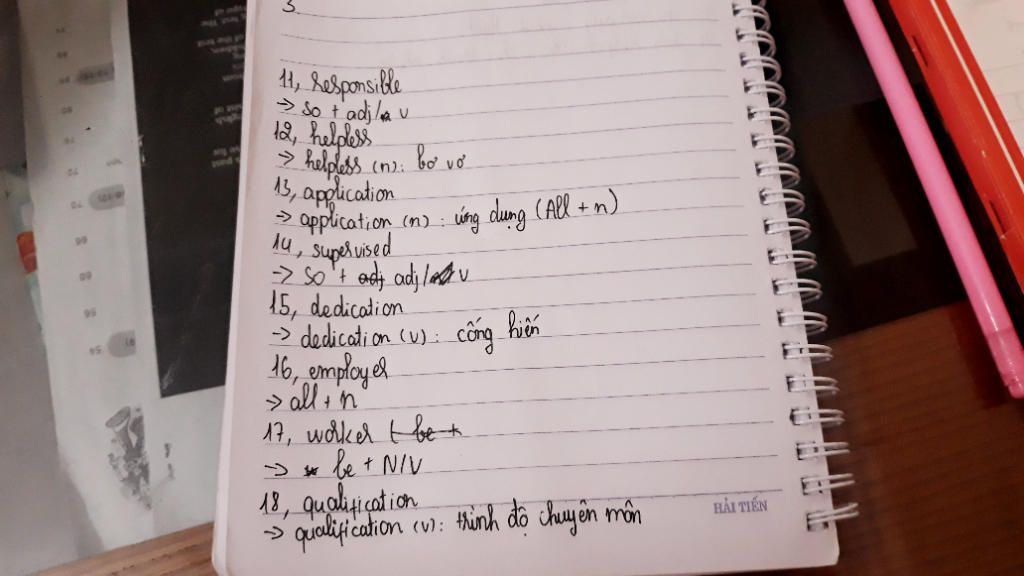 3.
11, responsible
→ so + adj/ v
12, helpless
→ helpless (n): bơ vơ
13, application
→ application (n): ứng dụng (All + n)
14, supervised
→ so + adj adj/ v
15, dedication
→ dedication (v): cống hiến
16, employer
→ all + n
17, worker ( be +
→ be + N/V
18, qualification
→ qualification (v): trình độ chuyên môn
HẢI TIẾN